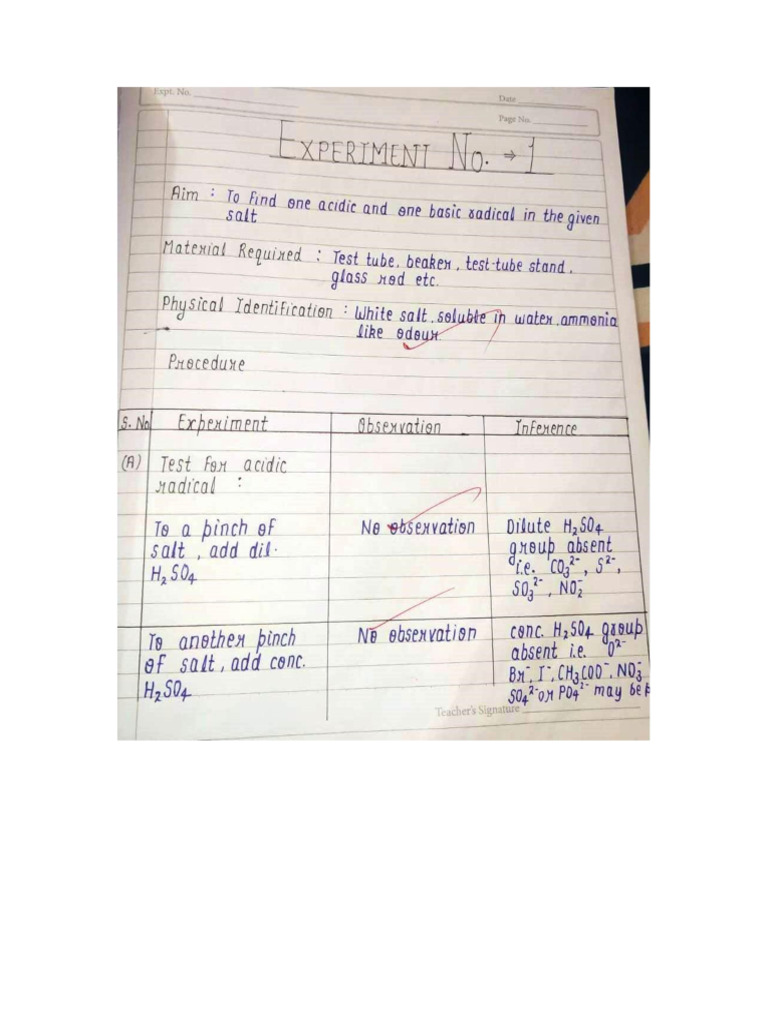 Expt. No.
Date
Page No.
EXPERIMENT No. → 1
Aim : To find one acidic and one basic radical in the given
salt
Material Required : Test tube, beaker, test-tube stand,
glass rod etc.
Physical Identification : White salt, soluble in water, ammonia
like odour.
Procedure
S. No Experiment Observation Inference
(A) Test for acidic
radical :
To a pinch of No observation Dilute H₂SO₄
salt, add dil. group absent
H₂SO₄ i.e. CO₃²⁻, S²⁻,
SO₃²⁻, NO₂⁻
To another pinch No observation conc. H₂SO₄ group
of salt, add conc. absent i.e.
H₂SO₄ Br⁻, I⁻, CH₃COO⁻, NO₃⁻
SO₄²⁻ or PO₄²⁻ may be
Teacher's Signature